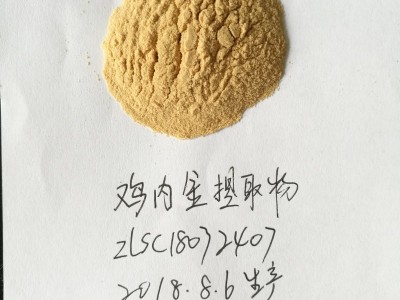 鸡内金提取物
ZLSC18032407
2018.8.6生产